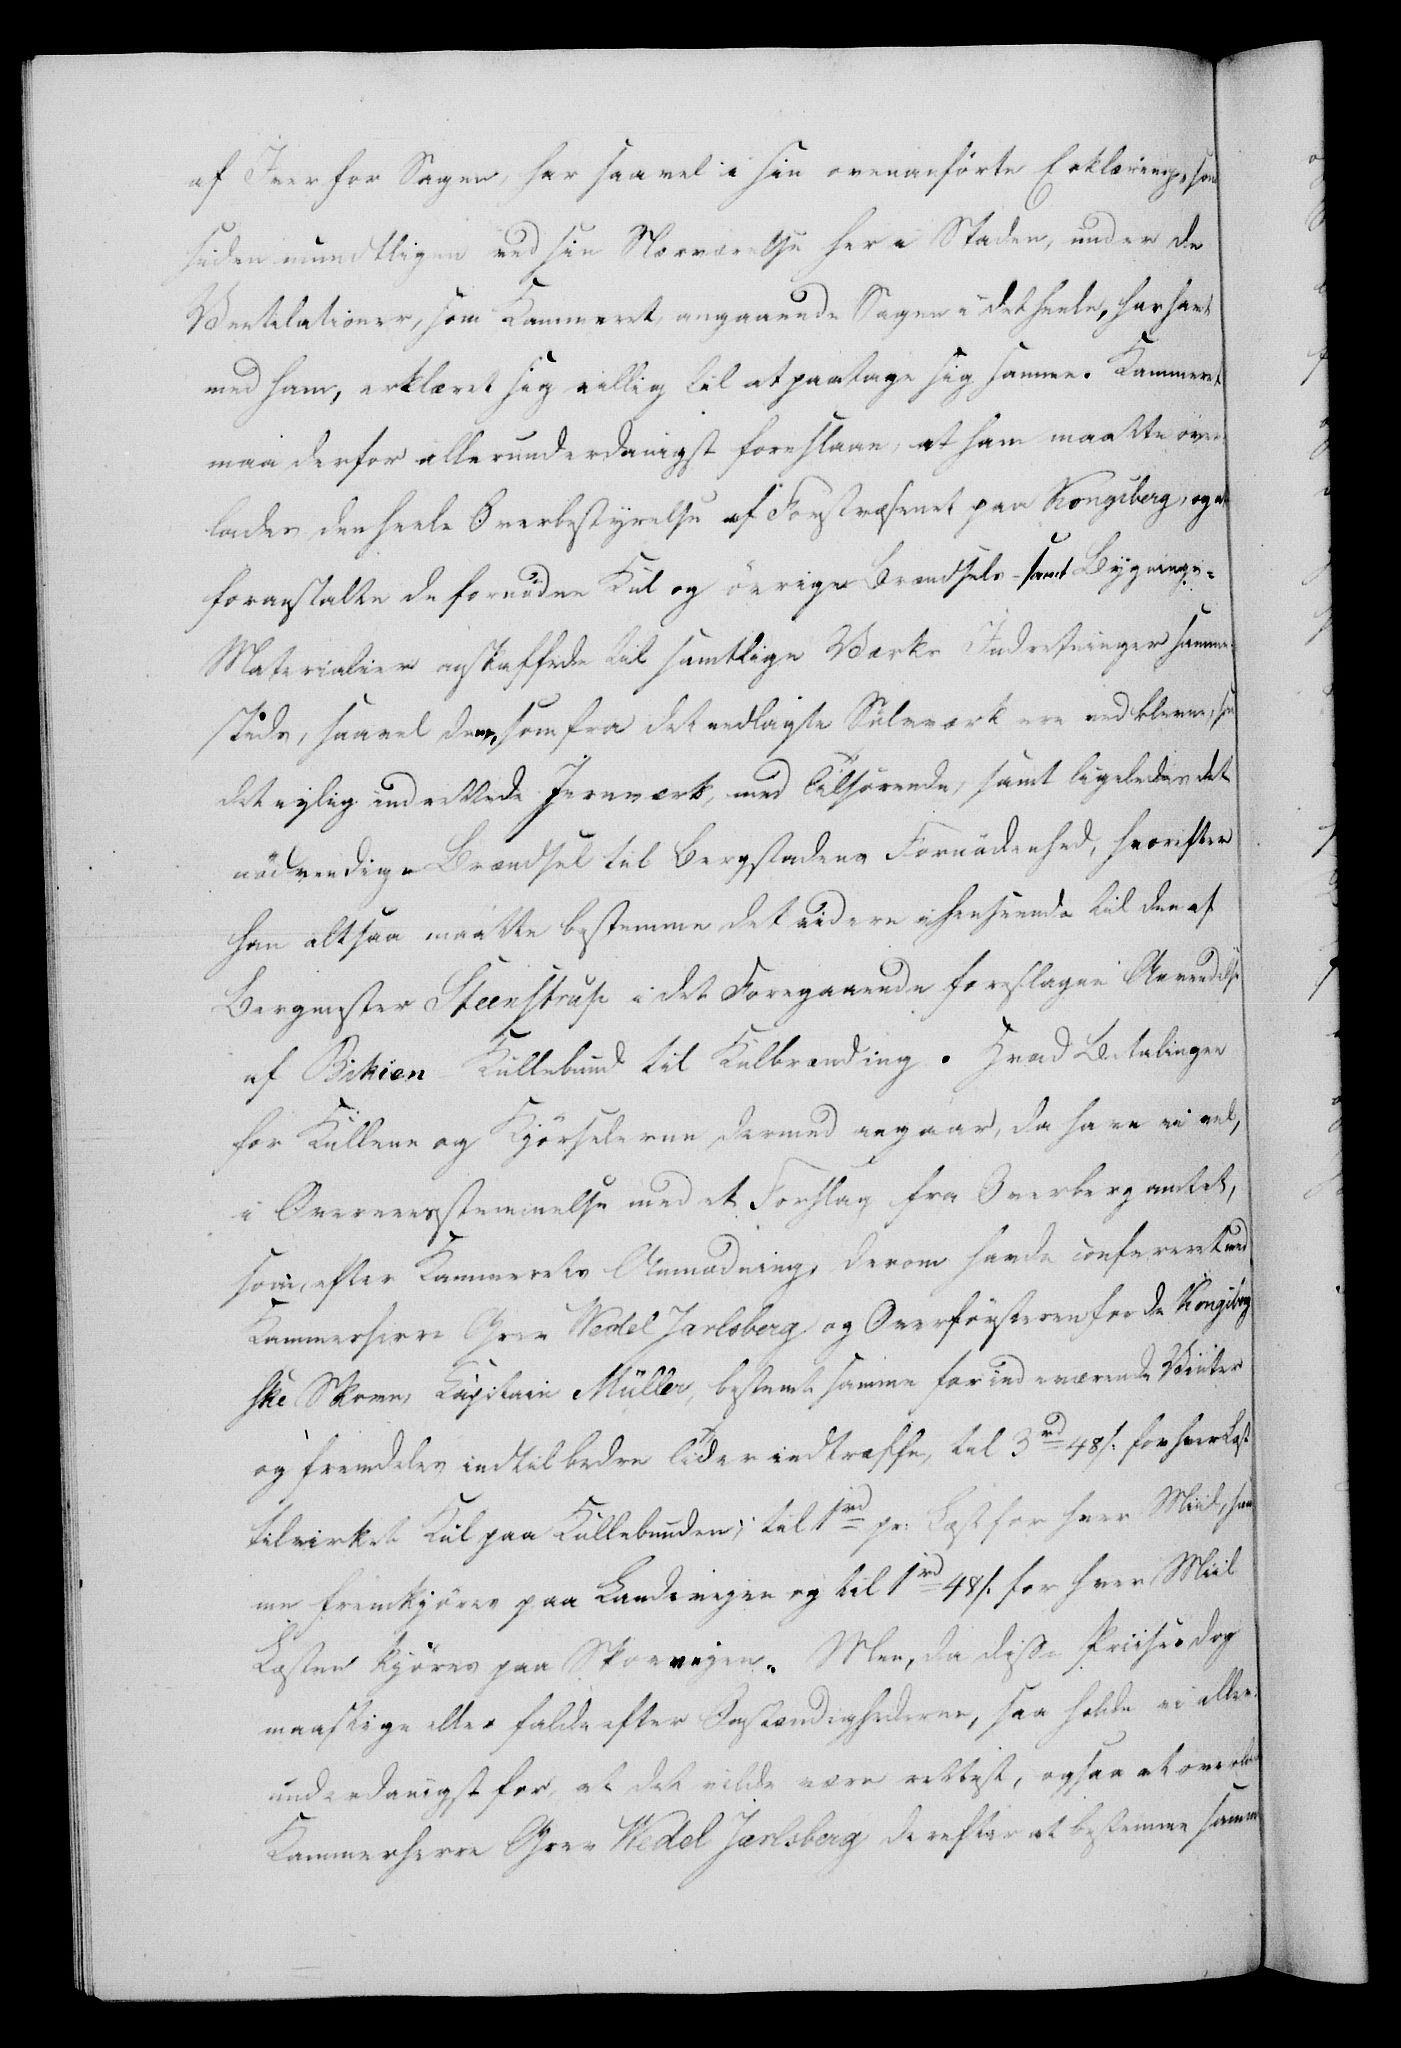 af Iver for Sagen, har saavel i sin ovenanførte Erklæring, som
siden mundtligen ved sin Nærværelse her i Staden, under de
Ventilationer, som Kammeret angaaende Sagen i det heele, har havt
med ham, erklæret sig villig til at paatage sig samme. Kammeret
maa derfor allerunderdanigst foreslaae, at ham maatte over¬
lades den heele Overbestyrelse af Forstvæsenet paa Kongsberg, og at
foranstalte de fornødne Kul og øvrige Brændsels- samt Bygnings-
Materialier anskaffede til samtlige Værks Indretninger samme¬
steds, saavel dem, som fra det nedlagte Sølvværk ere vedblevne, som
det nylig indrettede Jernværk, med Tilhørende, samt ligeledes det
nødvendige Brændsel til Bergstadens Fornødenhed, hvorefter
han altsaa maatte bestemme det videre i henseende til den af
Bergmester Steenstrup i det Foregaaende foreslagne Anvendelse
af Bikien Kullebund til Kulbrænding. Hvad Betalingen
for Kullene og Kjørselerne dermed angaar, da have vi vel,
i Overeensstemmelse med et Forslag fra Overbergamtet,
som, efter Kammerets Anmodning, derom havde confereret med
Kammerherre Grev Wedel Jarlsberg og Overførsteren for de Kongsberg
ske Skove, Capitain Müller, bestemt samme for indeværende Vinter
og fremdeles indtil bedre Tider indtræffe, til 3 rd 48 s. for hver Læst
tilvirket Kul paa Kullebunden; til 1 rd pr: Læst for hver Miil, sam
me fremkjøres paa Landeveien og til 1 rd 48 s. for hver Miil
Læsten kjøres paa Skovveien. Men, da disse Priiser dog
maa stige eller falde efter Omstændighederne, saa holde vi aller¬
underdanigst for, at det vilde være rettest, ogsaa at overlade
Kammerherre Grev Wedel Jarlsberg derefter at bestemme samme